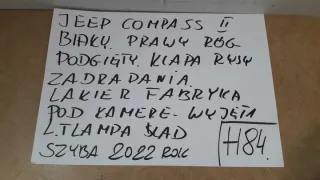 JEEP COMPASS II
BIAŁY. PRAWY RÓG
PODGIĘTY. KLAPA RYSY
ZADRADANIA.
LAKIER FABRYKA
POD KAMERE - WYJĘTA
L.TLAMPA ŚLAD
SZYBA 2022 ROK
H84.